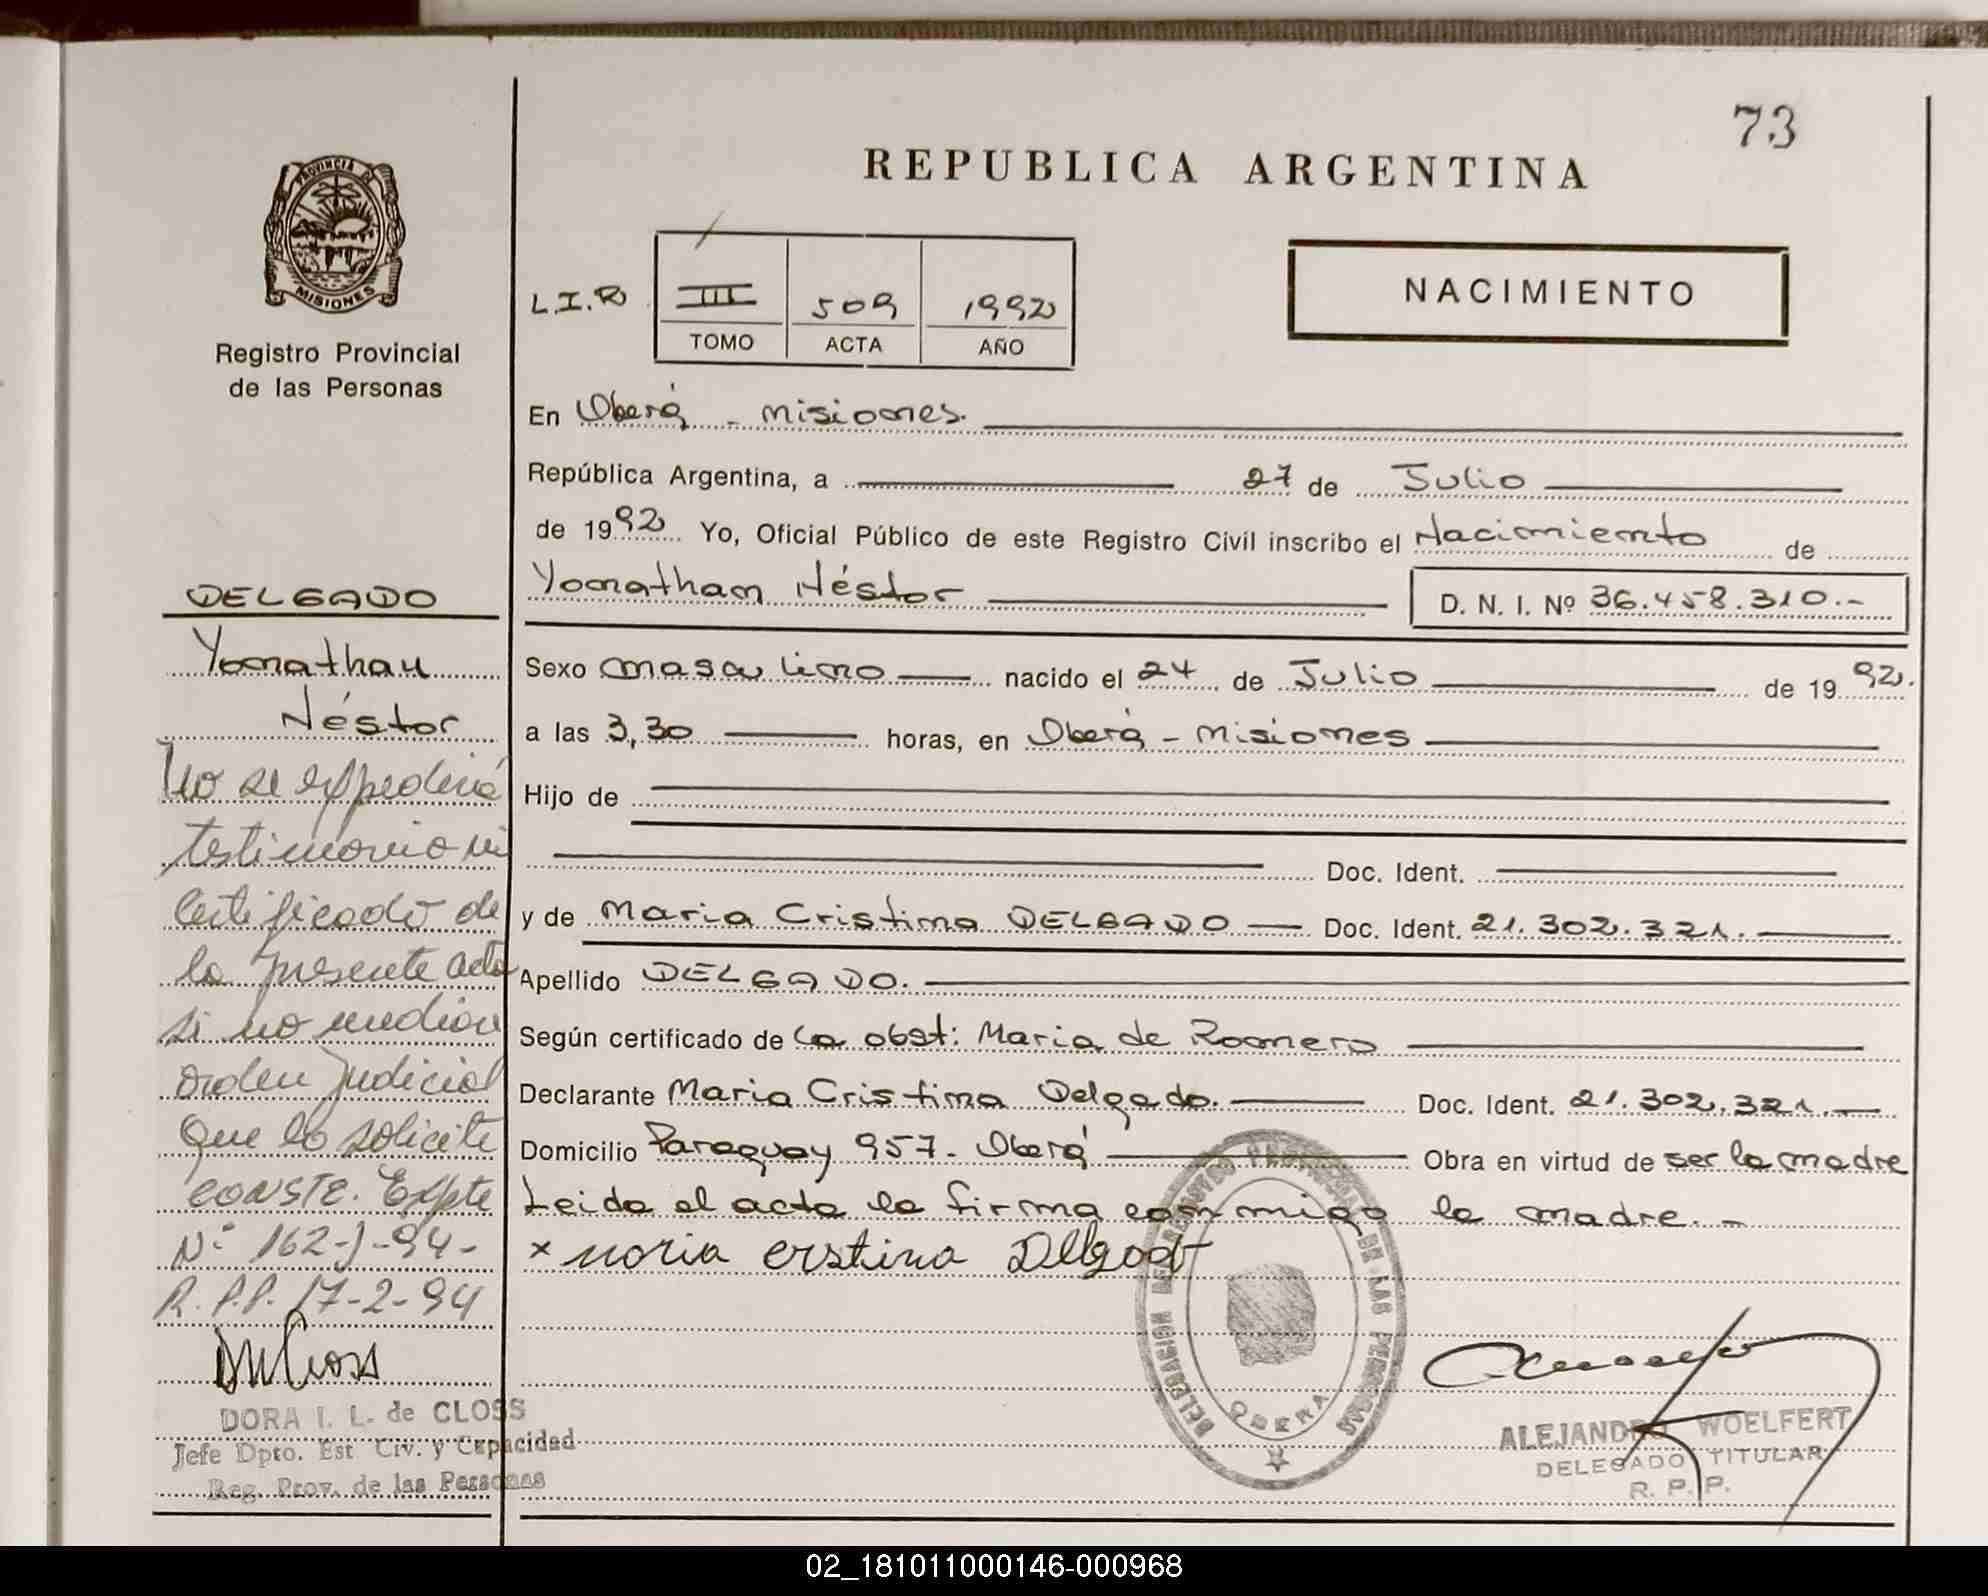 73
REPUBLICA ARGENTINA
PROVINCIA DE
MISIONES
Registro Provincial
de las Personas
L.I.R III 509 1992
TOMO ACTA AÑO
NACIMIENTO
En Oberá - Misiones.
República Argentina, a 27 de Julio
de 1992 Yo, Oficial Público de este Registro Civil inscribo el Nacimiento de
Yonathan Néstor D. N. I. Nº 36.458.310.-
Sexo masculino nacido el 24 de Julio de 1992.
a las 3,30 horas, en Oberá - Misiones
Hijo de
Doc. Ident.
y de Maria Cristina DELGADO Doc. Ident. 21.302.321.
Apellido DELGADO.
Según certificado de la obst: Maria de Romero
Declarante Maria Cristina Delgado. Doc. Ident. 21.302.321.
Domicilio Paraguay 957- Oberá Obra en virtud de ser la madre
Leida el acta la firma conmigo la madre.-
x maria cristina Delgado
DELEGACION DEL REGISTRO PROVINCIAL DE LAS PERSONAS
OBERA
ALEJANDRO WOELFERT
DELEGADO TITULAR
R. P. P.
DELGADO
Yonathan
Néstor
No se expedirá
testimonio ni
certificado de
la presente acta
si no median
orden Judicial
que lo solicite
CONSTE. Expte
Nº 162-J-94-
R.P.P. 17-2-94
DORA I. L. de CLOSS
Jefe Dpto. Est Civ. y Capacidad
Reg. Prov. de las Personas
02_181011000146-000968